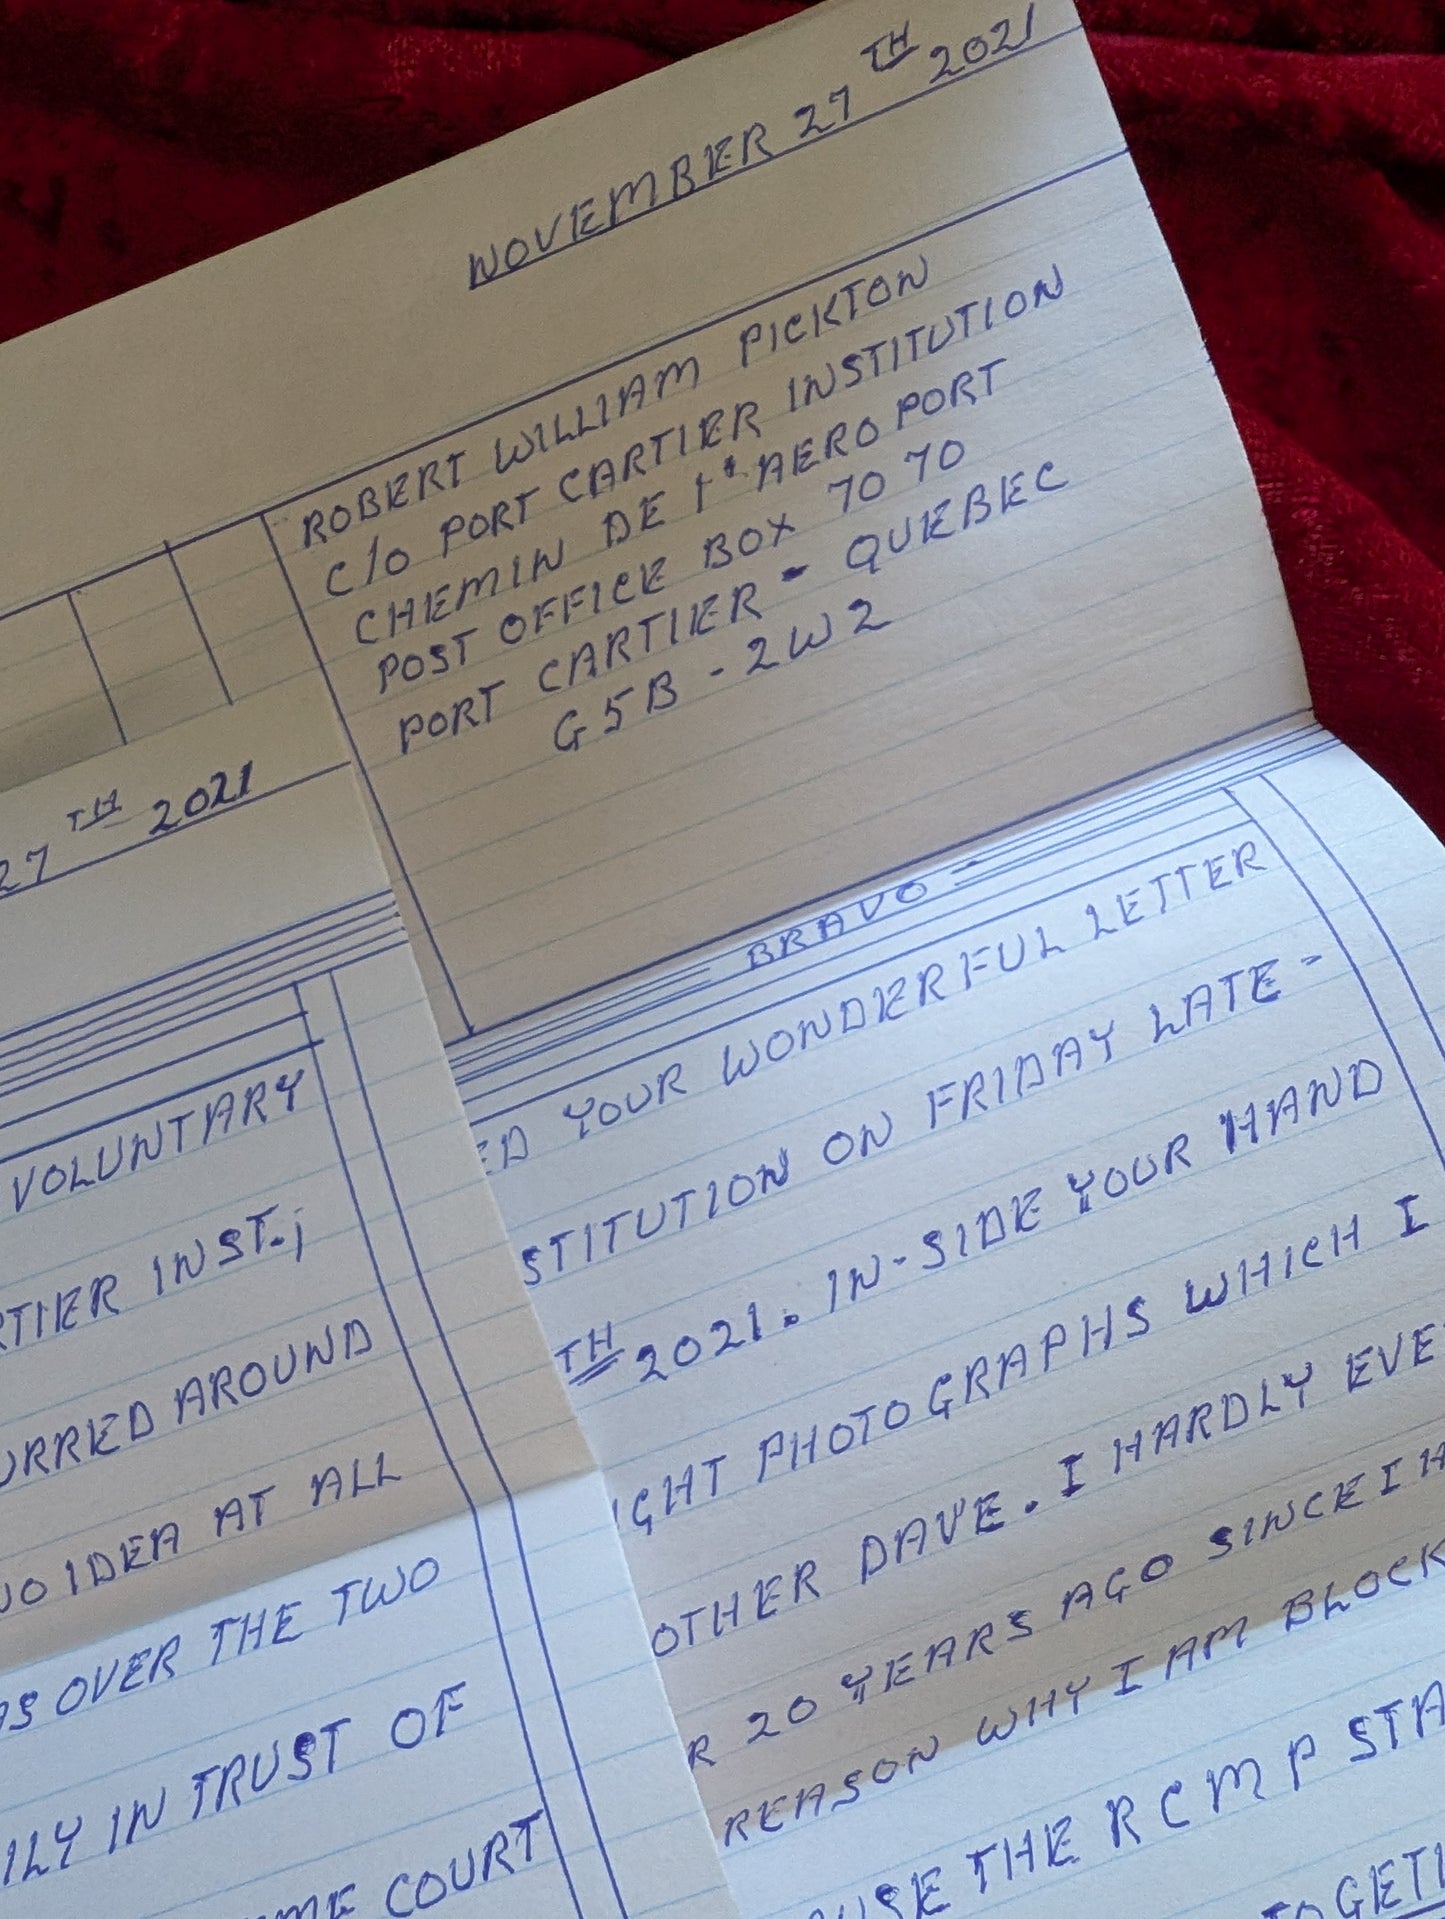 NOVEMBER 27TH 2021
ROBERT WILLIAM PICKTON
C/O PORT CARTIER INSTITUTION
CHEMIN DE l'AEROPORT
POST OFFICE BOX 7070
PORT CARTIER - QUEBEC
G5B - 2W2
BRAVO
ED YOUR WONDERFUL LETTER
STITUTION ON FRIDAY LATE -
TH 2021. IN-SIDE YOUR HAND
IGHT PHOTOGRAPHS WHICH I
OTHER DAVE. I HARDLY EVE
R 20 YEARS AGO SINCE I H
REASON WHY I AM BLOCK
USE THE RCMP STA
TOGET
27TH 2021
VOLUNTARY
RTIER INST.;
URRED AROUND
NO IDEA AT ALL
DS OVER THE TWO
ILY IN TRUST OF
ME COURT